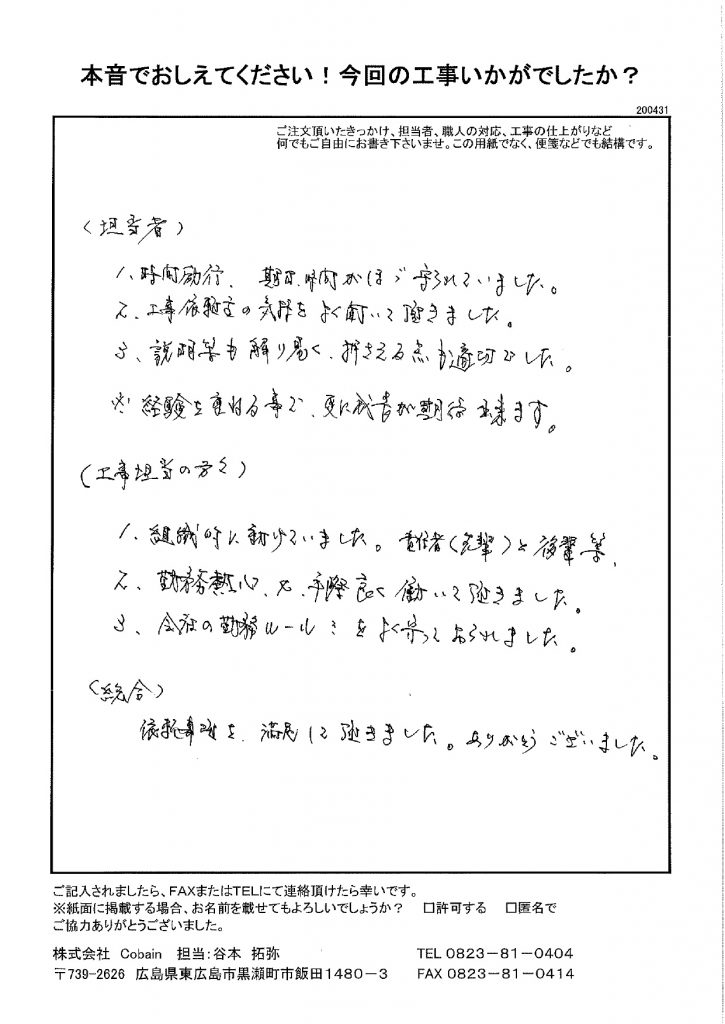 本音でおしえてください！今回の工事いかがでしたか？
200431
ご注文頂いたきっかけ、担当者、職人の対応、工事の仕上がりなど
何でもご自由にお書き下さいませ。この用紙でなく、便箋などでも結構です。
（担当者）
1、時間励行、期日、時間がほゞ守られていました。
2、工事依頼主の気持をよく働いて頂きました。
3、説明等も解り易く、押さえる点も適切でした。
※ 経験を重ねる事で、更に成長が期待出来ます。
（工事担当の方々）
1、組織的に動けていました。責任者（先輩）と後輩等、
2、勤務熱心、で、手際良く働いて頂きました。
3、会社の勤務ルールをよく守っておられました。
（総合）
依頼事項を、満足に頂きました。ありがとうございました。
ご記入されましたら、FAXまたはTELにて連絡頂けたら幸いです。
※紙面に掲載する場合、お名前を載せてもよろしいでしょうか？ □許可する □匿名で
ご協力ありがとうございました。
株式会社 Cobain 担当:谷本 拓弥 TEL 0823－81－0404
〒739-2626 広島県東広島市黒瀬町市飯田1480－3 FAX 0823－81－0414